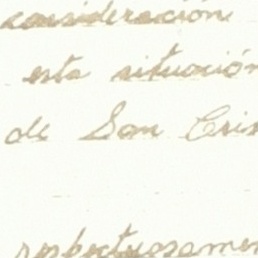 consideración
esta situación
de San Cris
respectuosamen